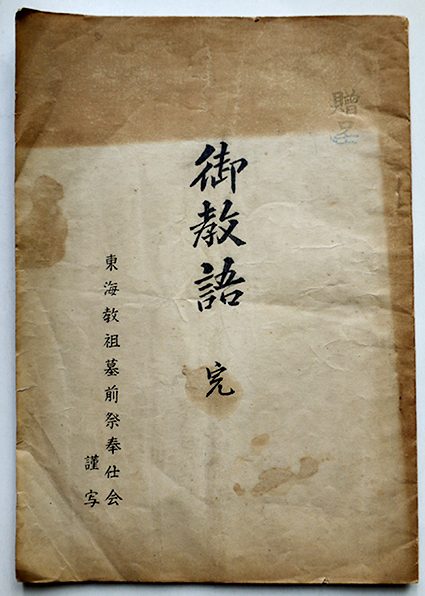 贈呈
御教語 完
東海教祖墓前祭奉仕会
謹写